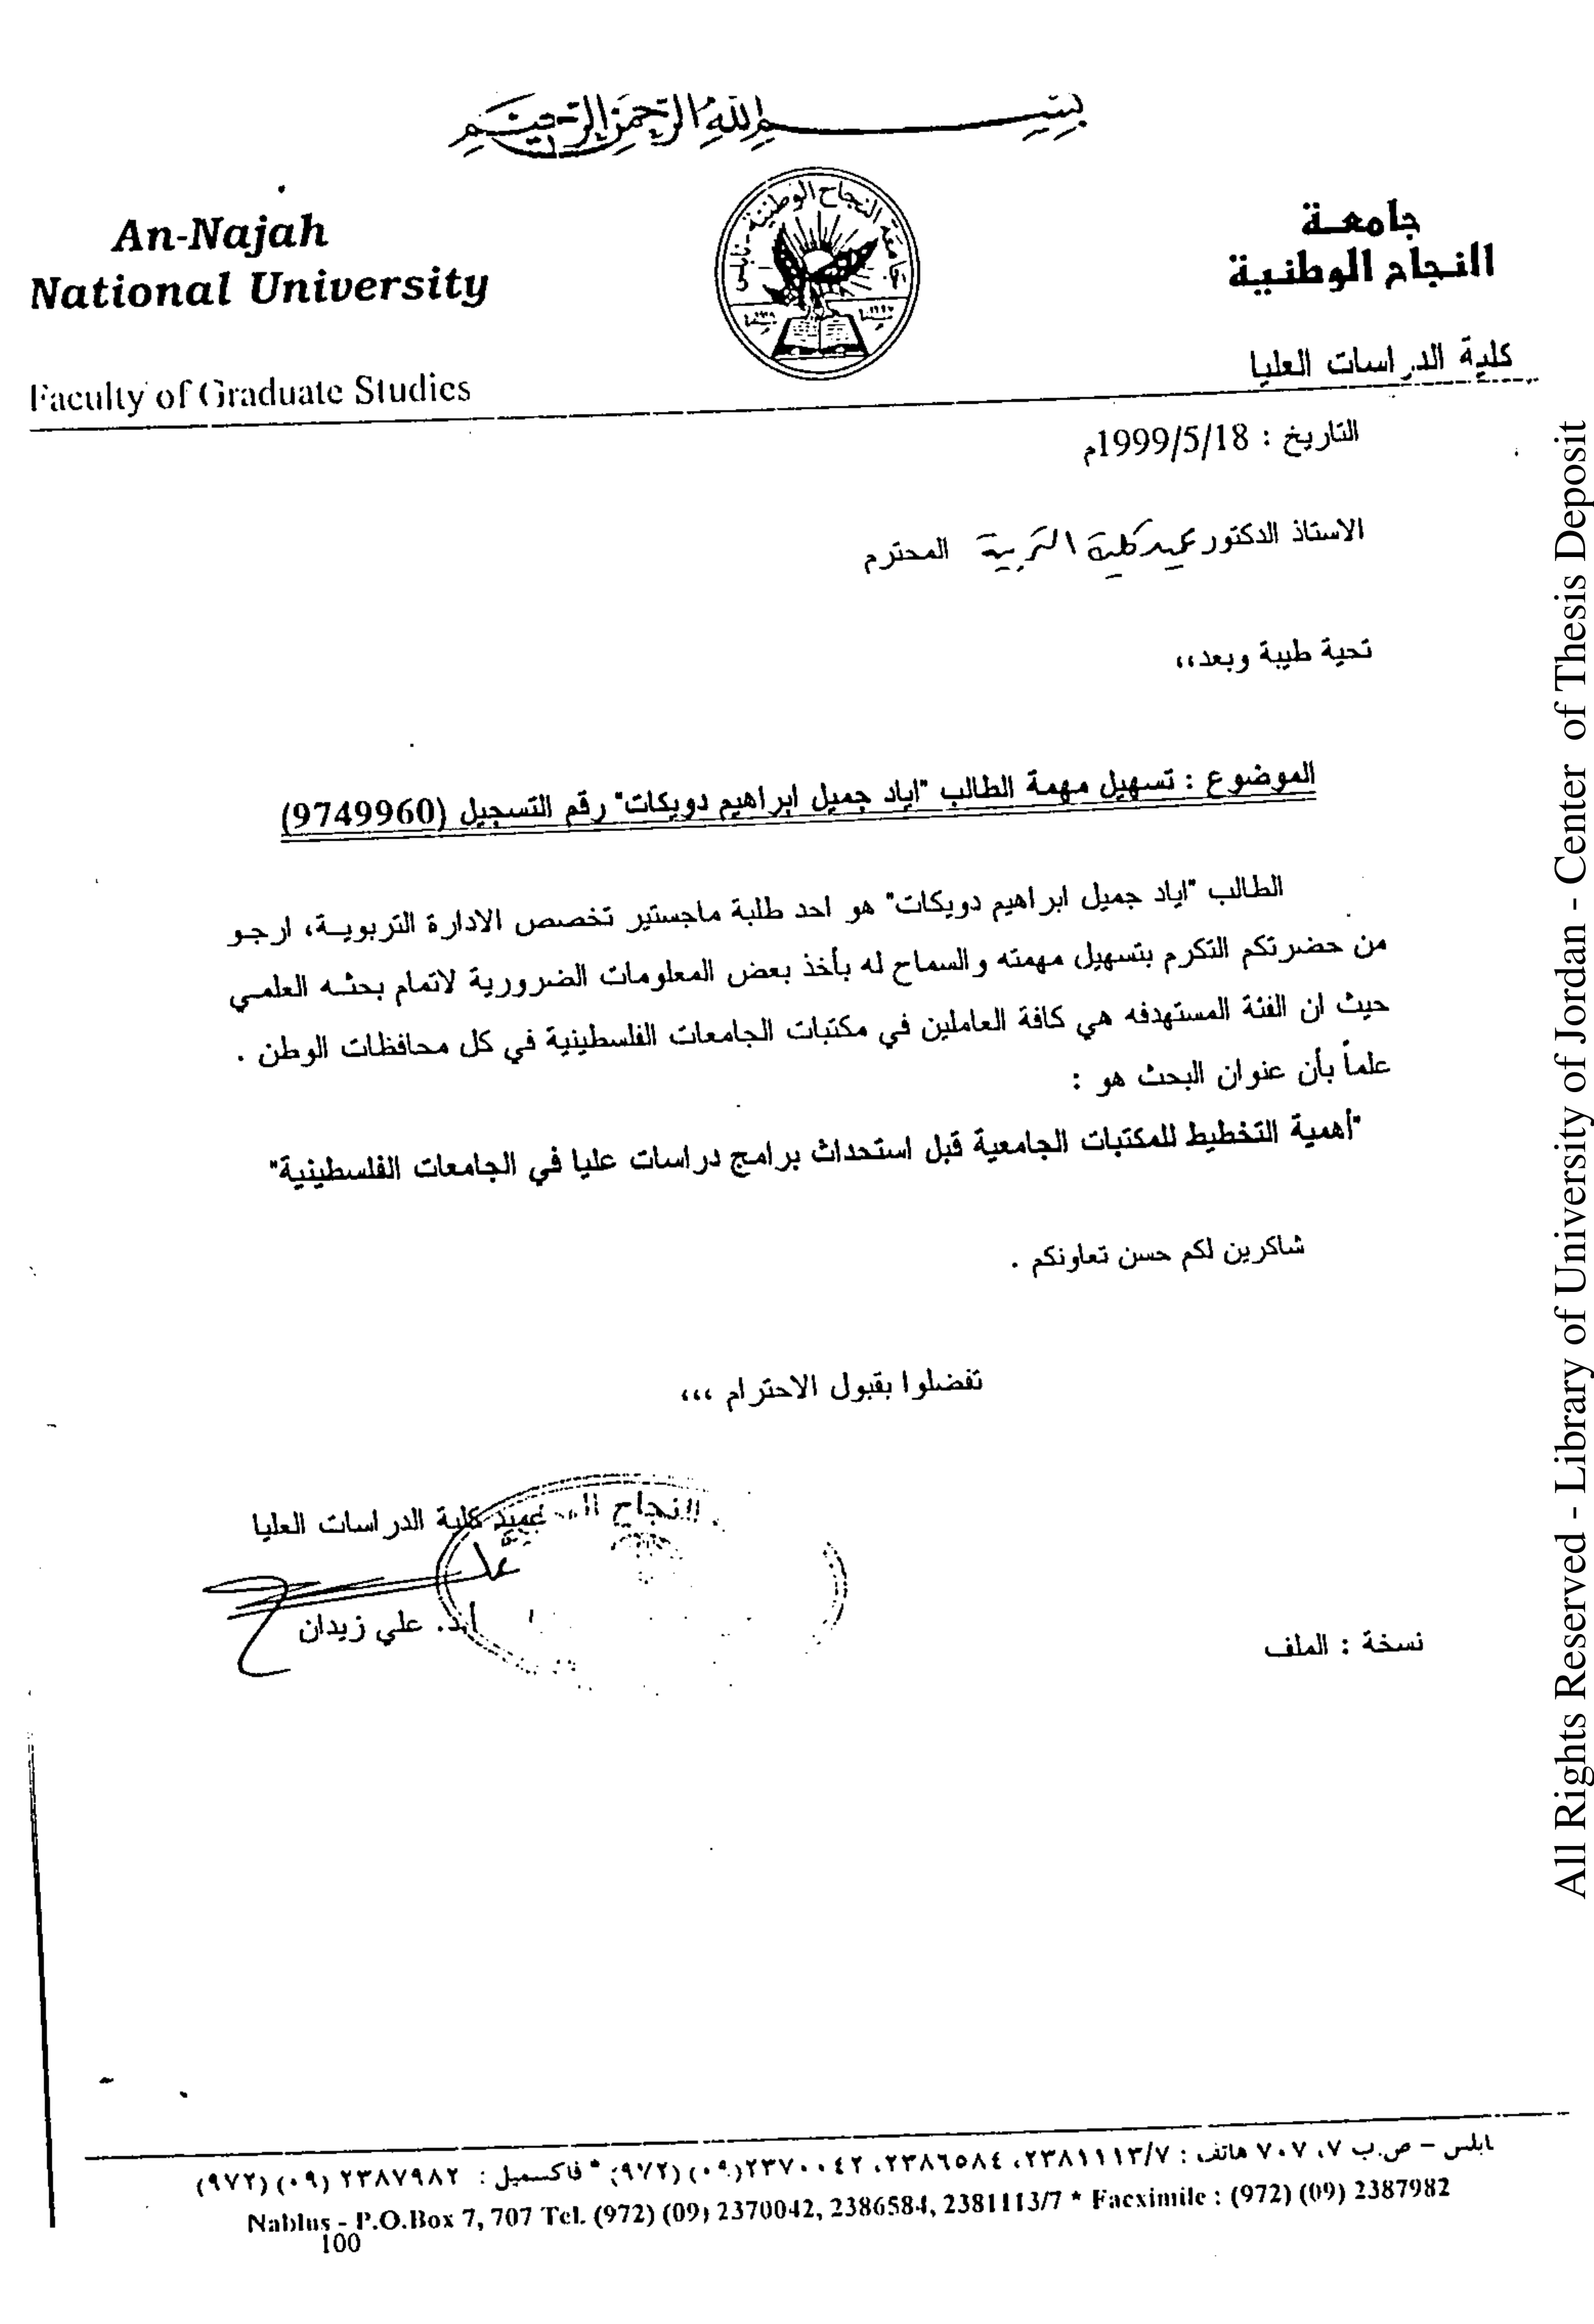 بسم الله الرحمن الرحيم
An-Najah
National University
Faculty of Graduate Studies
جامعة النجاح الوطنية - نابلس
جامعـة
النجاح الوطنية
كلية الدراسات العليا
التاريخ : 1999/5/18م
الاستاذ الدكتور عميد كلية التربية المحترم
تحية طيبة وبعد،،
الموضوع : تسهيل مهمة الطالب "اياد جميل ابراهيم دويكات" رقم التسجيل (9749960)
الطالب "اياد جميل ابراهيم دويكات" هو احد طلبة ماجستير تخصص الادارة التربويـة، ارجـو
من حضرتكم التكرم بتسهيل مهمته والسماح له بأخذ بعض المعلومات الضرورية لاتمام بحثـه العلمـي
حيث ان الفئة المستهدفه هي كافة العاملين في مكتبات الجامعات الفلسطينية في كل محافظات الوطن .
علماً بأن عنوان البحث هو :
"أهمية التخطيط للمكتبات الجامعية قبل استحداث برامج دراسات عليا في الجامعات الفلسطينية"
شاكرين لكم حسن تعاونكم .
تفضلوا بقبول الاحترام ،،،
عميد كلية الدراسات العليا
النجاح
أ.د. علي زيدان
نسخة : الملف
ابلس - ص.ب ٧، ٧٠٧ هاتف : ٢٣٨١١١٣/٧، ٢٣٨٦٥٨٤، ٢٣٧٠٠٤٢(٠٩) (٩٧٢) * فاكسميل : ٢٣٨٧٩٨٢ (٠٩) (٩٧٢)
Nablus - P.O.Box 7, 707 Tel. (972) (09) 2370042, 2386584, 2381113/7 * Facximile : (972) (09) 2387982
100
All Rights Reserved - Library of University of Jordan - Center of Thesis Deposit